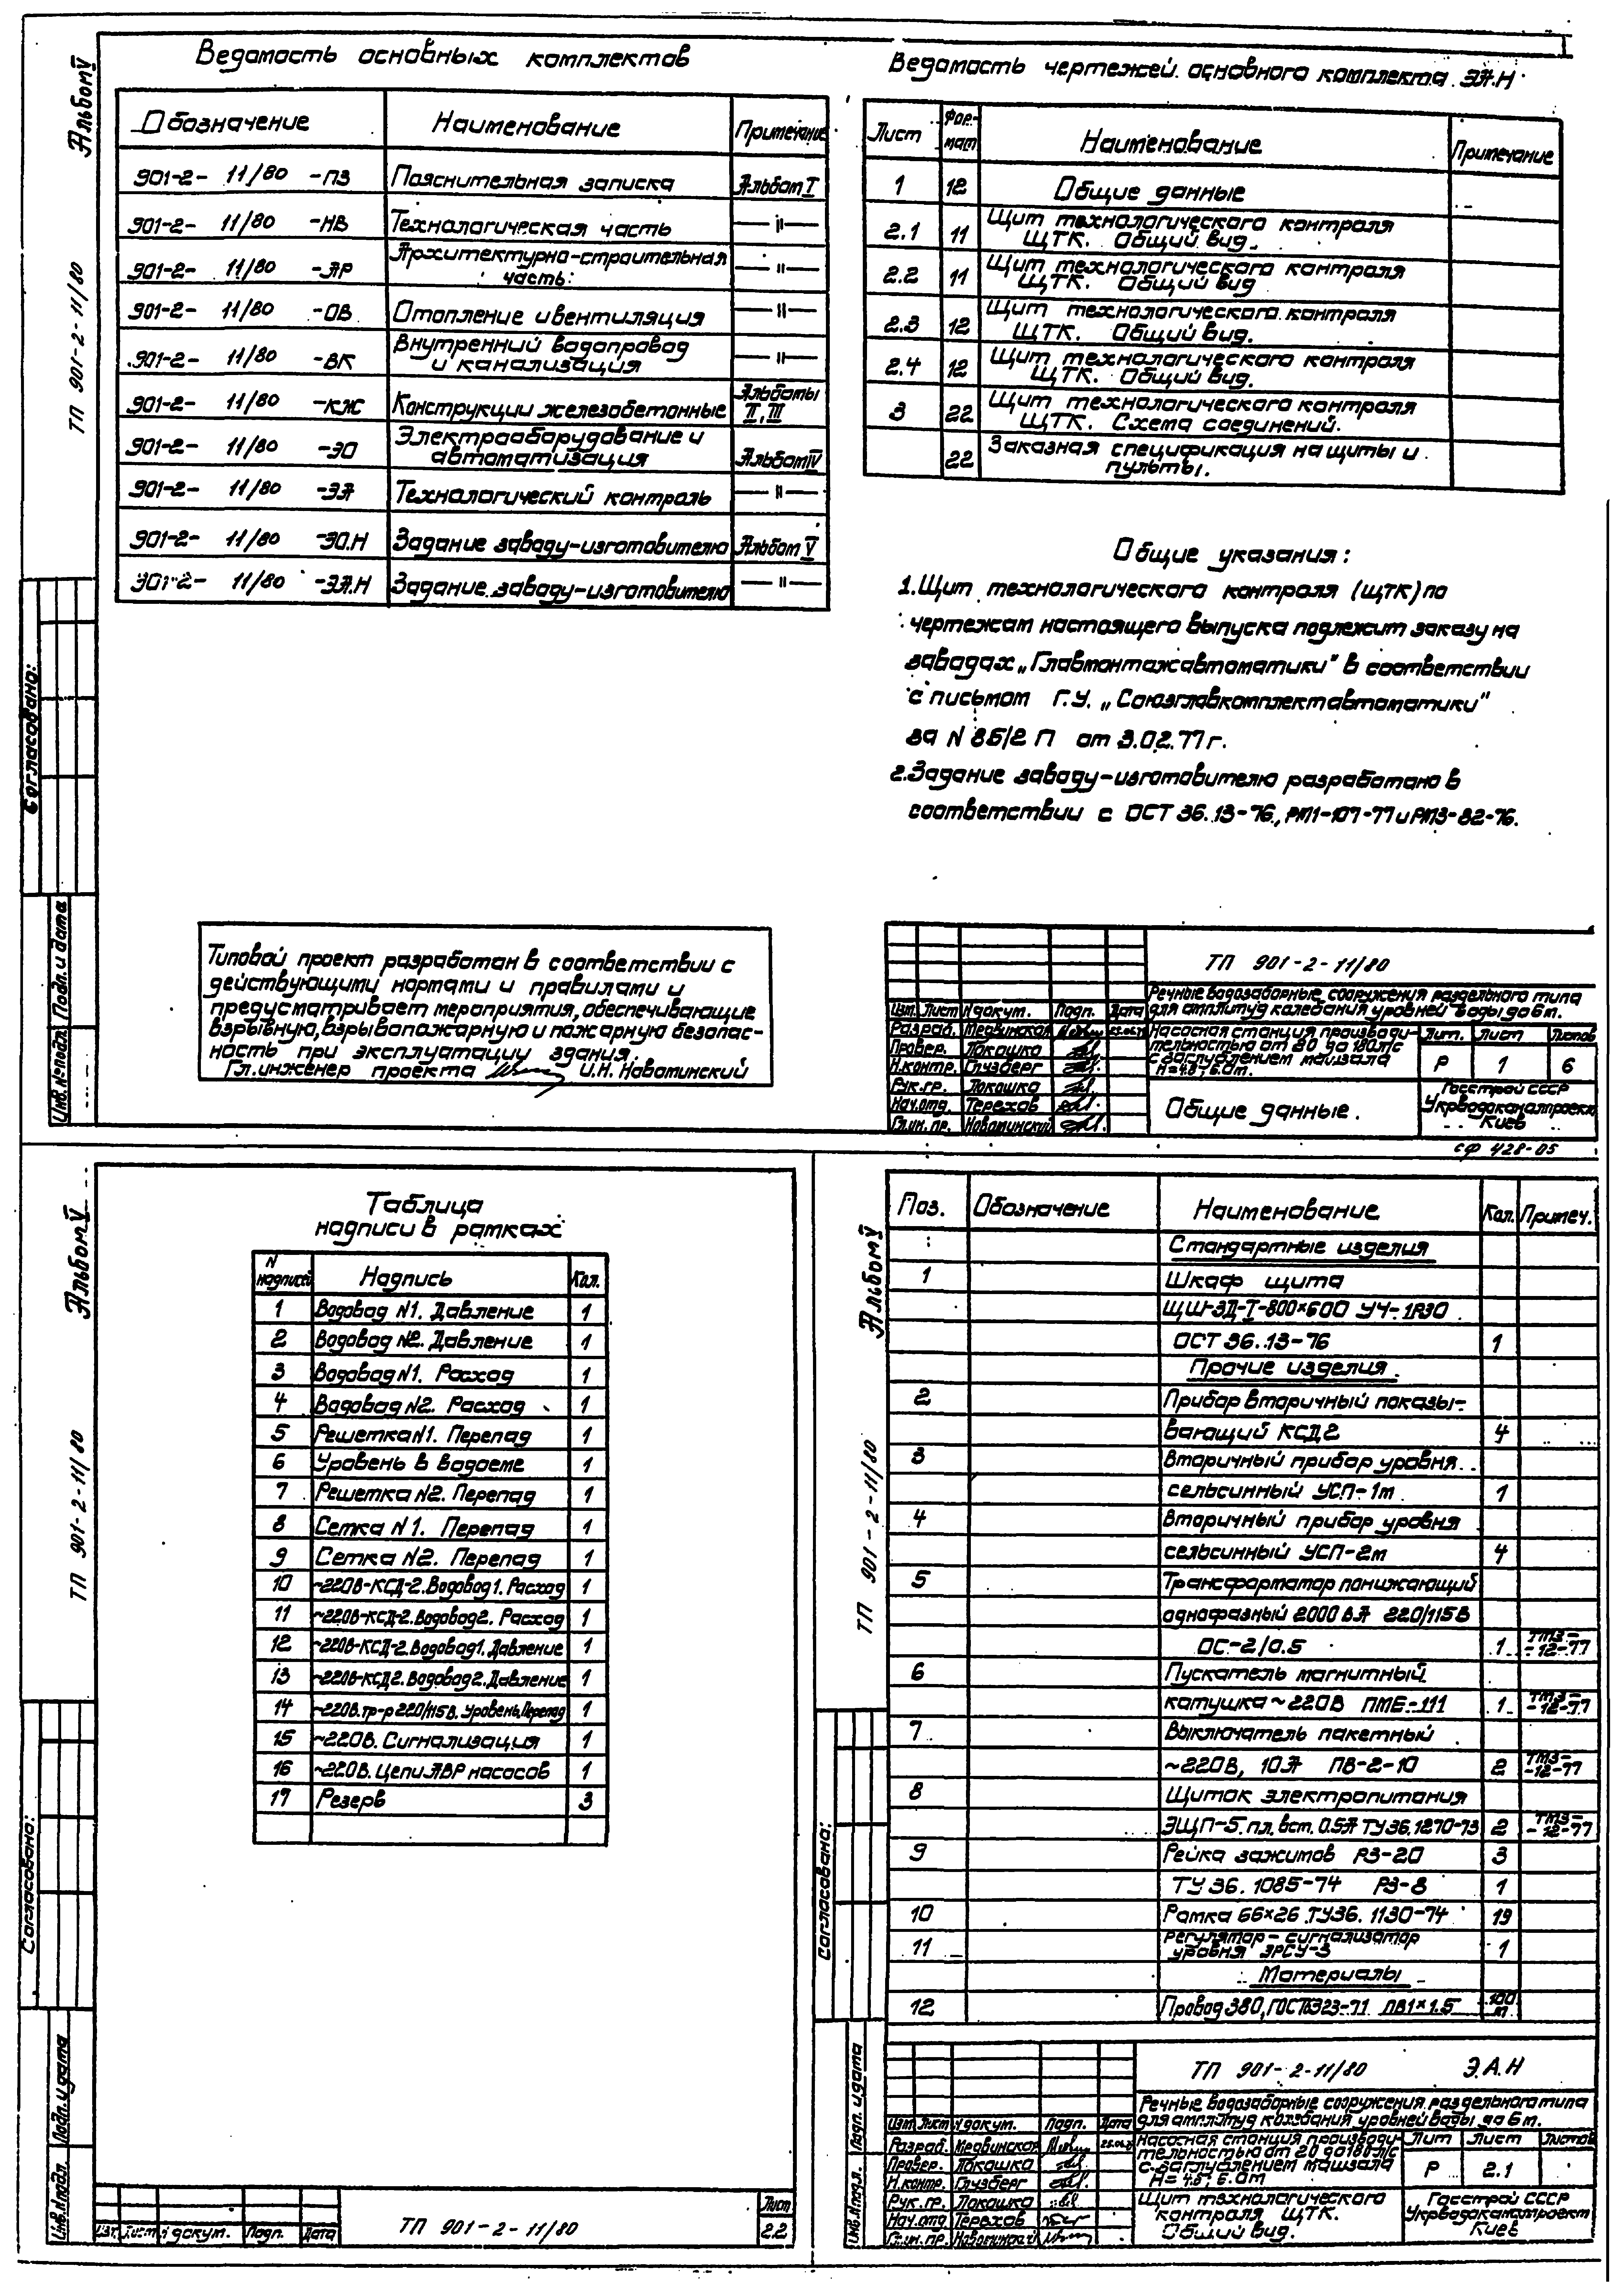 Альбом V
ТП 901-2-11/80
Ведомость основных комплектов
Обозначение Наименование Примечание
901-2- 11/80 -ПЗ Пояснительная записка Альбом I
901-2- 11/80 -НВ Технологическая часть —"—
901-2- 11/80 -АР Архитектурно-строительная часть. —"—
901-2- 11/80 -ОВ Отопление и вентиляция —"—
901-2- 11/80 -ВК Внутренний водопровод и канализация —"—
901-2- 11/80 -КЖ Конструкции железобетонные Альбомы II, III
901-2- 11/80 -ЭО Электрооборудование и автоматизация Альбом IV
901-2- 11/80 -ЭА Технологический контроль —"—
901-2- 11/80 -ЭО.Н Задание заводу-изготовителю Альбом V
901-2- 11/80 -ЭА.Н Задание заводу-изготовителю —"—
Ведомость чертежей основного комплекта ЭА.Н
Лист Формат Наименование Примечание
1 12 Общие данные
2.1 11 Щит технологического контроля ЩТК. Общий вид.
2.2 11 Щит технологического контроля ЩТК. Общий вид
2.3 12 Щит технологического контроля ЩТК. Общий вид.
2.4 12 Щит технологического контроля ЩТК. Общий вид.
3 22 Щит технологического контроля ЩТК. Схема соединений.
22 Заказная спецификация на щиты и пульты.
Общие указания:
1. Щит технологического контроля (ЩТК) по
чертежам настоящего выпуска подлежит заказу на
заводах „Главмонтажавтоматики" в соответствии
с письмом Г.У. „Союзглавкомплектавтоматики"
за N 86/2 П от 3.02.77 г.
2. Задание заводу-изготовителю разработано в
соответствии с ОСТ 36.13-76, РМ1-107-77 и РМ3-82-76.
Типовой проект разработан в соответствии с
действующими нормами и правилами и
предусматривает мероприятия, обеспечивающие
взрывную, взрывопожарную и пожарную безопас-
ность при эксплуатации здания.
Гл. инженер проекта И.Н. Новоминский
Согласовано:
Инв.№подл. Подп. и дата
ТП 901-2-11/80
Речные водозаборные сооружения раздельного типа
для амплитуд колебания уровней воды до 6 м.
Изм. Лист N докум. Подп. Дата
Разраб. Медвинская
Провер. Локошко
Н.контр. Глузберг
Рук.гр. Локошко
Нач.отд. Терехов
Гл.ин.пр. Новоминский
Насосная станция производи-
тельностью от 80 до 180 л/с
с заглублением машзала
Н=4.8; 6.0 м.
Лит. Лист Листов
Р 1 6
Общие данные.
Госстрой СССР
Укрводоканалпроект
Киев
сф 428-05
Альбом V
ТП 901-2-11/80
Таблица
надписи в рамках
N надписей Надпись Кол.
1 Водовод N1. Давление 1
2 Водовод №2. Давление 1
3 Водовод N1. Расход 1
4 Водовод N2. Расход 1
5 Решетка N1. Перепад 1
6 Уровень в водоеме 1
7 Решетка N2. Перепад 1
8 Сетка N1. Перепад 1
9 Сетка N2. Перепад 1
10 ~220В-КСД-2. Водовод 1. Расход 1
11 ~220В-КСД-2. Водовод 2. Расход 1
12 ~220В-КСД-2. Водовод 1. Давление 1
13 ~220В-КСД2. Водовод 2. Давление 1
14 ~220В. тр-р 220/115 В. Уровень, Перепад 1
15 ~220В. Сигнализация 1
16 ~220В. Цепи АВР насосов 1
17 Резерв 3
Согласовано:
Инв.Nподл. Подп. и дата
Изм. Лист N докум. Подп. Дата
ТП 901-2-11/80
Лист
2.2
Альбом V
ТП 901-2-11/80
Поз. Обозначение Наименование Кол. Примеч.
Стандартные изделия
1 Шкаф щита
ЩШ-ЗД-I-800×600 УЧ-1Р30
ОСТ 36.13-76 1
Прочие изделия.
2 Прибор вторичный показы-
вающий КСД2 4
3 Вторичный прибор уровня
сельсинный УСП-1м 1
4 Вторичный прибор уровня
сельсинный УСП-2м 4
5 Трансформатор понижающий
однофазный 2000 ВА 220/115 В
ОС-2/0.5 1 ТМ3-12-77
6 Пускатель магнитный
катушка ~220В ПМЕ-111 1 ТМ3-12-77
7 Выключатель пакетный
~220В, 10А ПВ-2-10 2 ТМ3-12-77
8 Щиток электропитания
ЭЩП-5. пл. вст. 0.5А ТУ36.1270-73 2 ТМ3-12-77
9 Рейка зажимов РЗ-20 3
ТУ 36.1085-74 РЗ-8 1
10 Рамка 66×26 ТУ36.1130-74 19
11 Регулятор-сигнализатор уровня ЭРСУ-3 1
Материалы
12 Провод 380, ГОСТ6323-71 ПВ1×1.5 100 м
Согласовано:
Инв.Nподл. Подп. и дата
ТП 901-2-11/80 Э.А.Н
Речные водозаборные сооружения раздельного типа
для амплитуд колебания уровней воды до 6 м.
Изм. Лист N докум. Подп. Дата
Разраб. Медвинская
Провер. Локошко
Н.контр. Глузберг
Рук.гр. Локошко
Нач.отд Терехов
Гл.ин.пр. Новоминский
Насосная станция производи-
тельностью от 20 до 180 л/с
с заглублением машзала
Н=4.8; 6.0м
Лит Лист Листов
Р 2.1
Щит технологического
контроля ЩТК.
Общий вид.
Госстрой СССР
Укрводоканалпроект
Киев